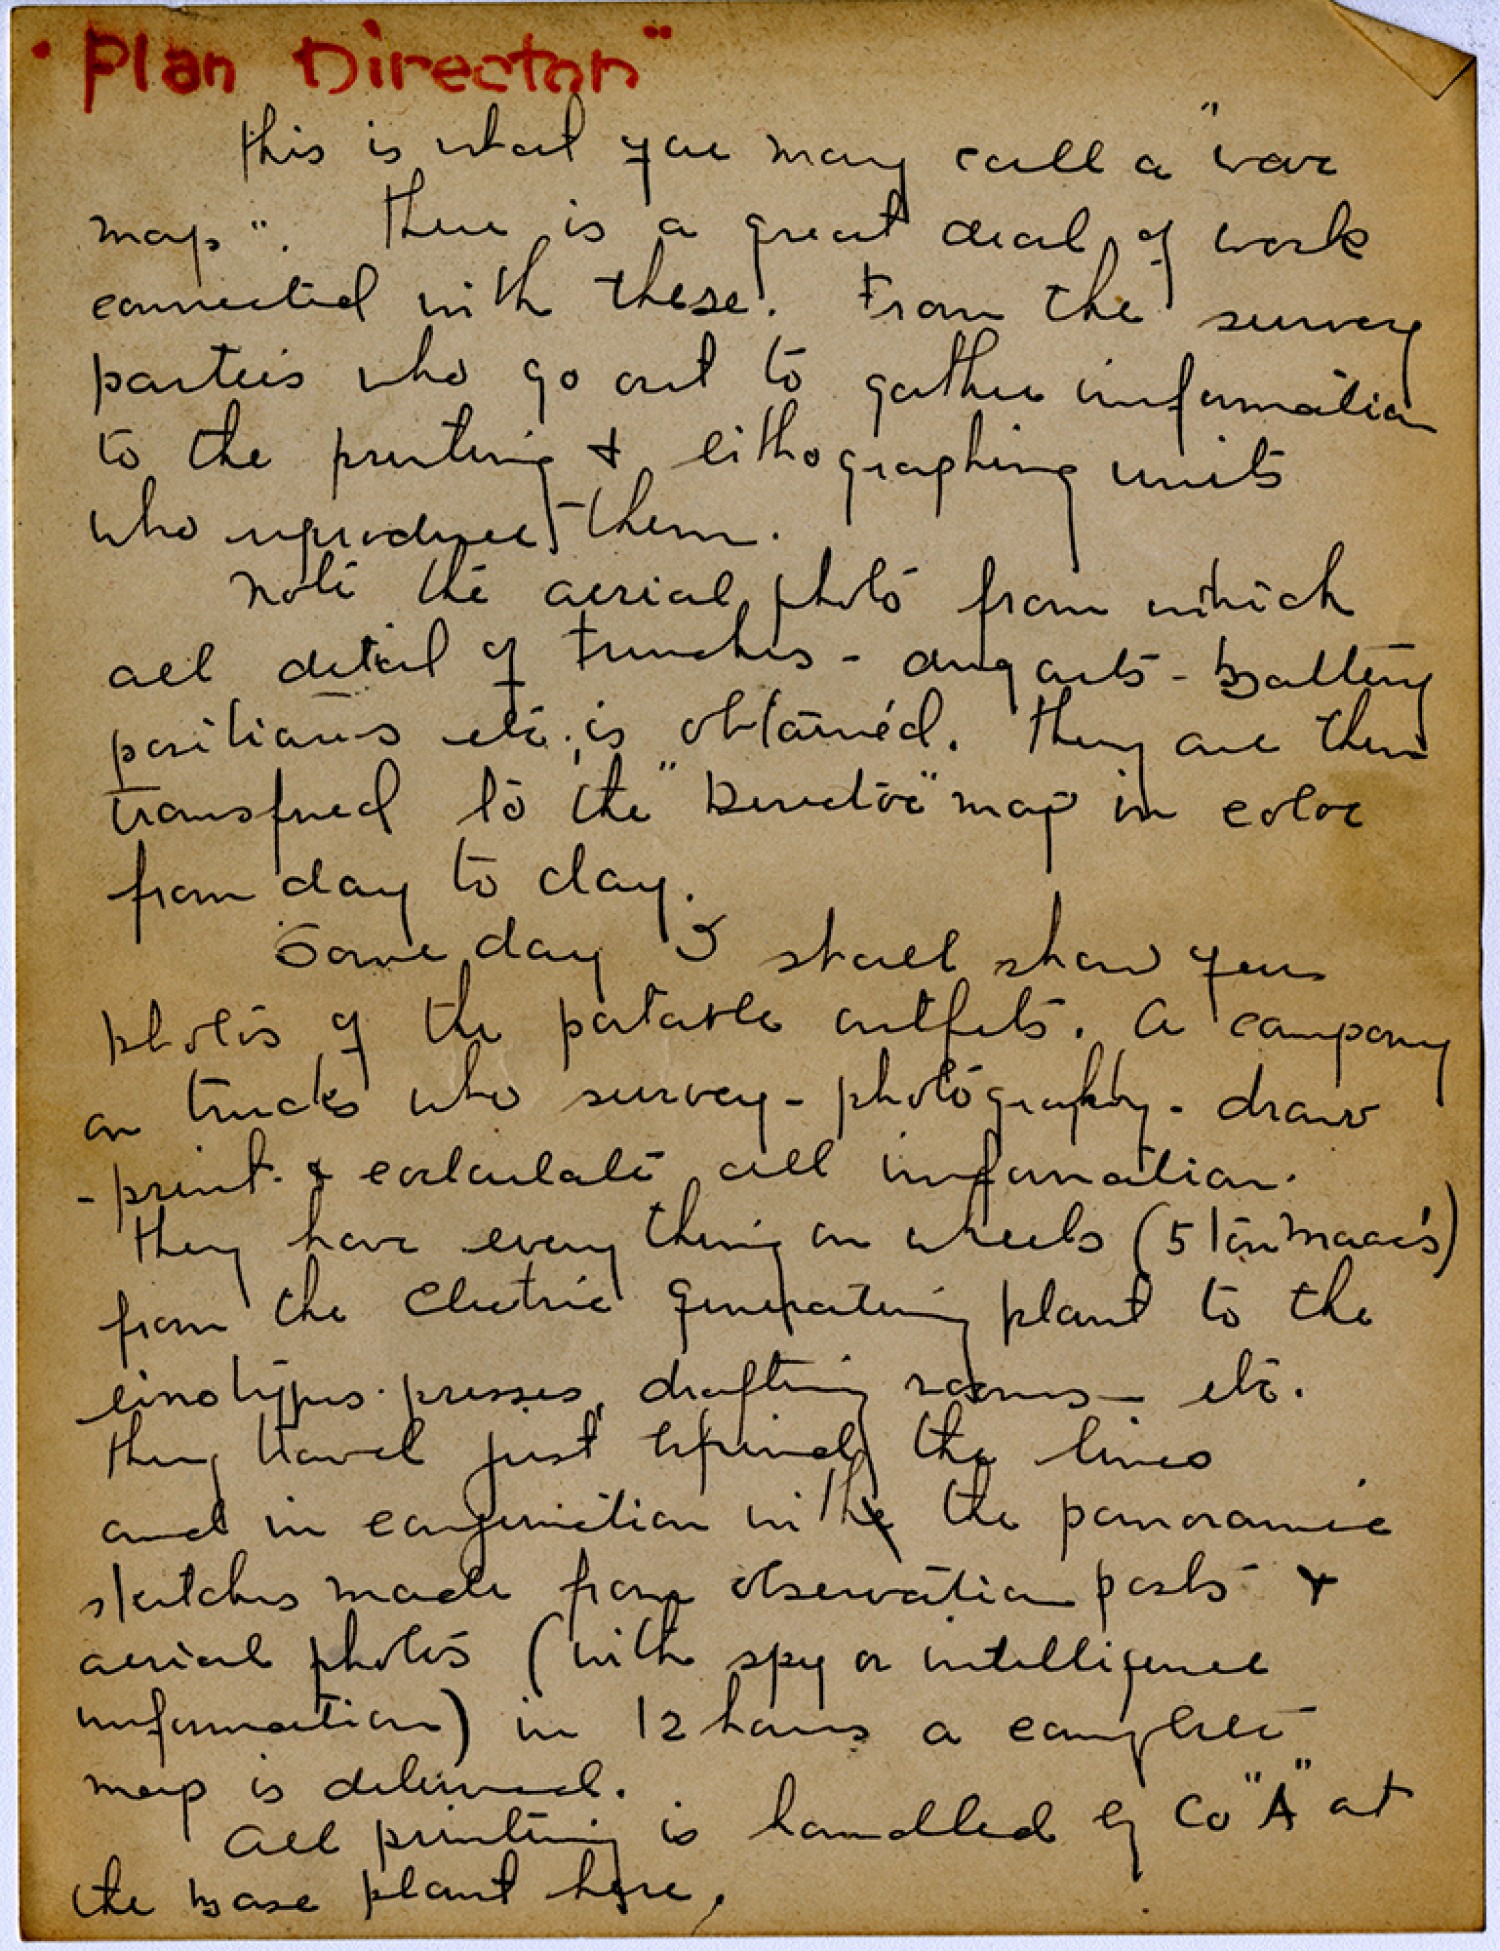 "Plan Director"
This is what you may call a "war
map". There is a great deal of work
connected with these. From the survey
parties who go out to gather information
to the printing & lithographing units
who reproduce them.
Note the aerial photo from which
all detail of trenches - dugouts - Battery
positions etc. is obtained. They are then
transfred to the "Director" map in color
from day to day.
Some day I shall show you
photos of the portable outfits. A company
on trucks who survey - photography - draw
- print - & calculate all information.
They have everything on wheels (5 ton Macc's)
from the Electric generating plant to the
linotypes. presses, drafting rooms - etc.
They travel just behind the lines
and in conjunction with the panoramic
sketches made from observation posts &
aerial photos (with spy or intelligence
information) in 12 hours a complete
map is delivered.
All printing is handled by Co "A" at
the Base plant here.